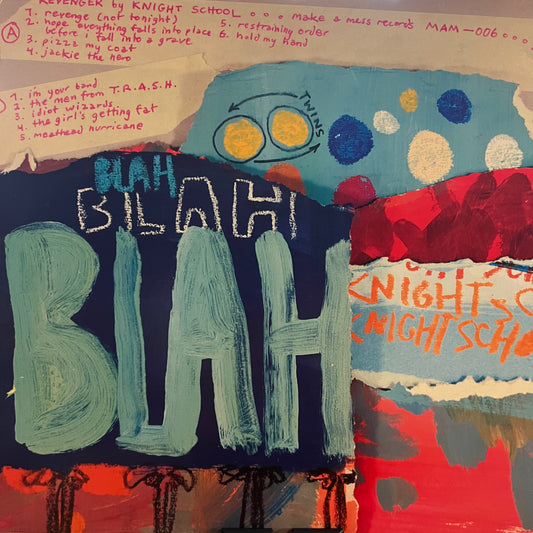 REVENGER by KNIGHT SCHOOL o o o make a mess records MAM-006 o o o
A
1. revenge (not tonight)
2. hope everything falls into place
before i fall into a grave
3. pizza my coat
4. jackie the hero
5. restraining order
6. hold my hand
1. i'm your band
2. the men from T.R.A.S.H.
3. idiot wizards
4. the girl's getting fat
5. meathead hurricane
TWINS
BLAH
BLAH
BLAH
KNIGHT SC
KNIGHT SCHO